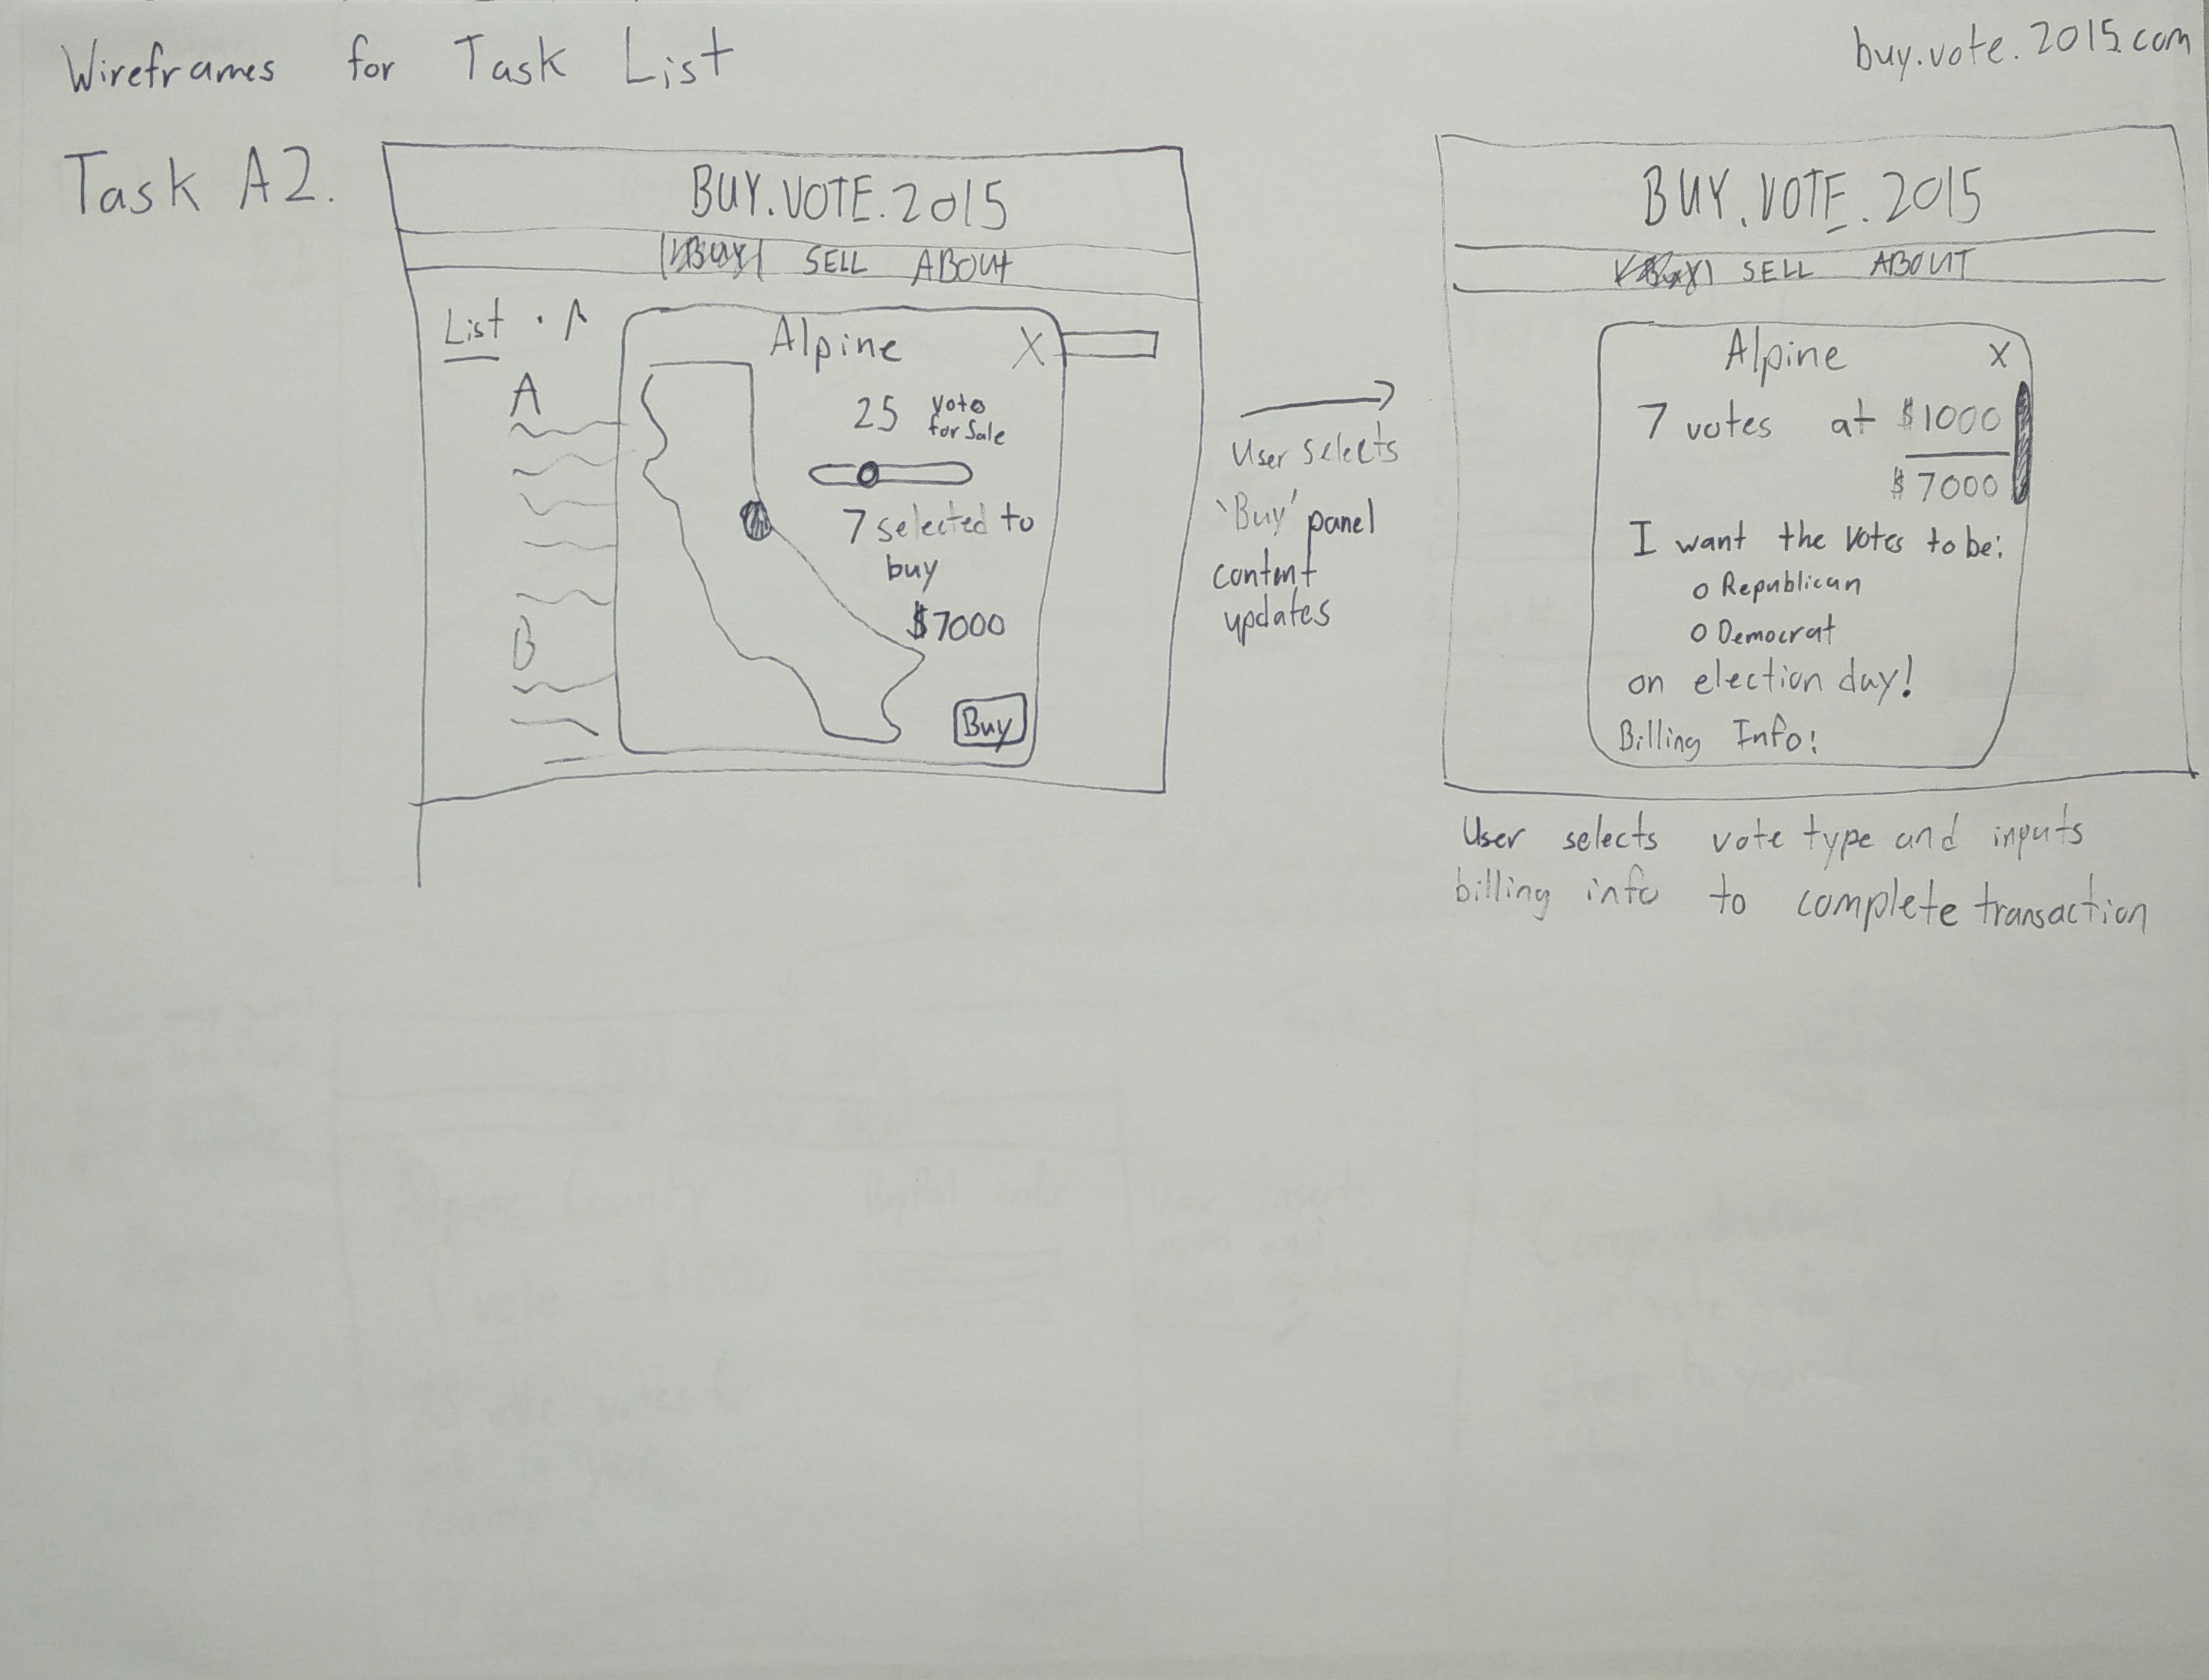 Wireframes for Task List
buy.vote.2015.com
Task A2.
BUY.VOTE.2015
BUY SELL ABOUT
List · A
Alpine X
A
25 vote
for sale
7 selected to
buy
$7000
B
Buy
User selects
'Buy' panel
content
updates
BUY.VOTE.2015
BUY SELL ABOUT
Alpine X
7 votes at $1000
$7000
I want the votes to be:
o Republican
o Democrat
on election day!
Billing Info:
User selects vote type and inputs
billing info to complete transaction